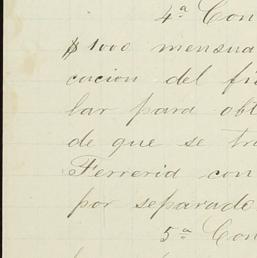 4ª Con
$1000 mensua
cacion del fi
lar para obt
de que se tra
Ferreria con
por separado
5ª Con